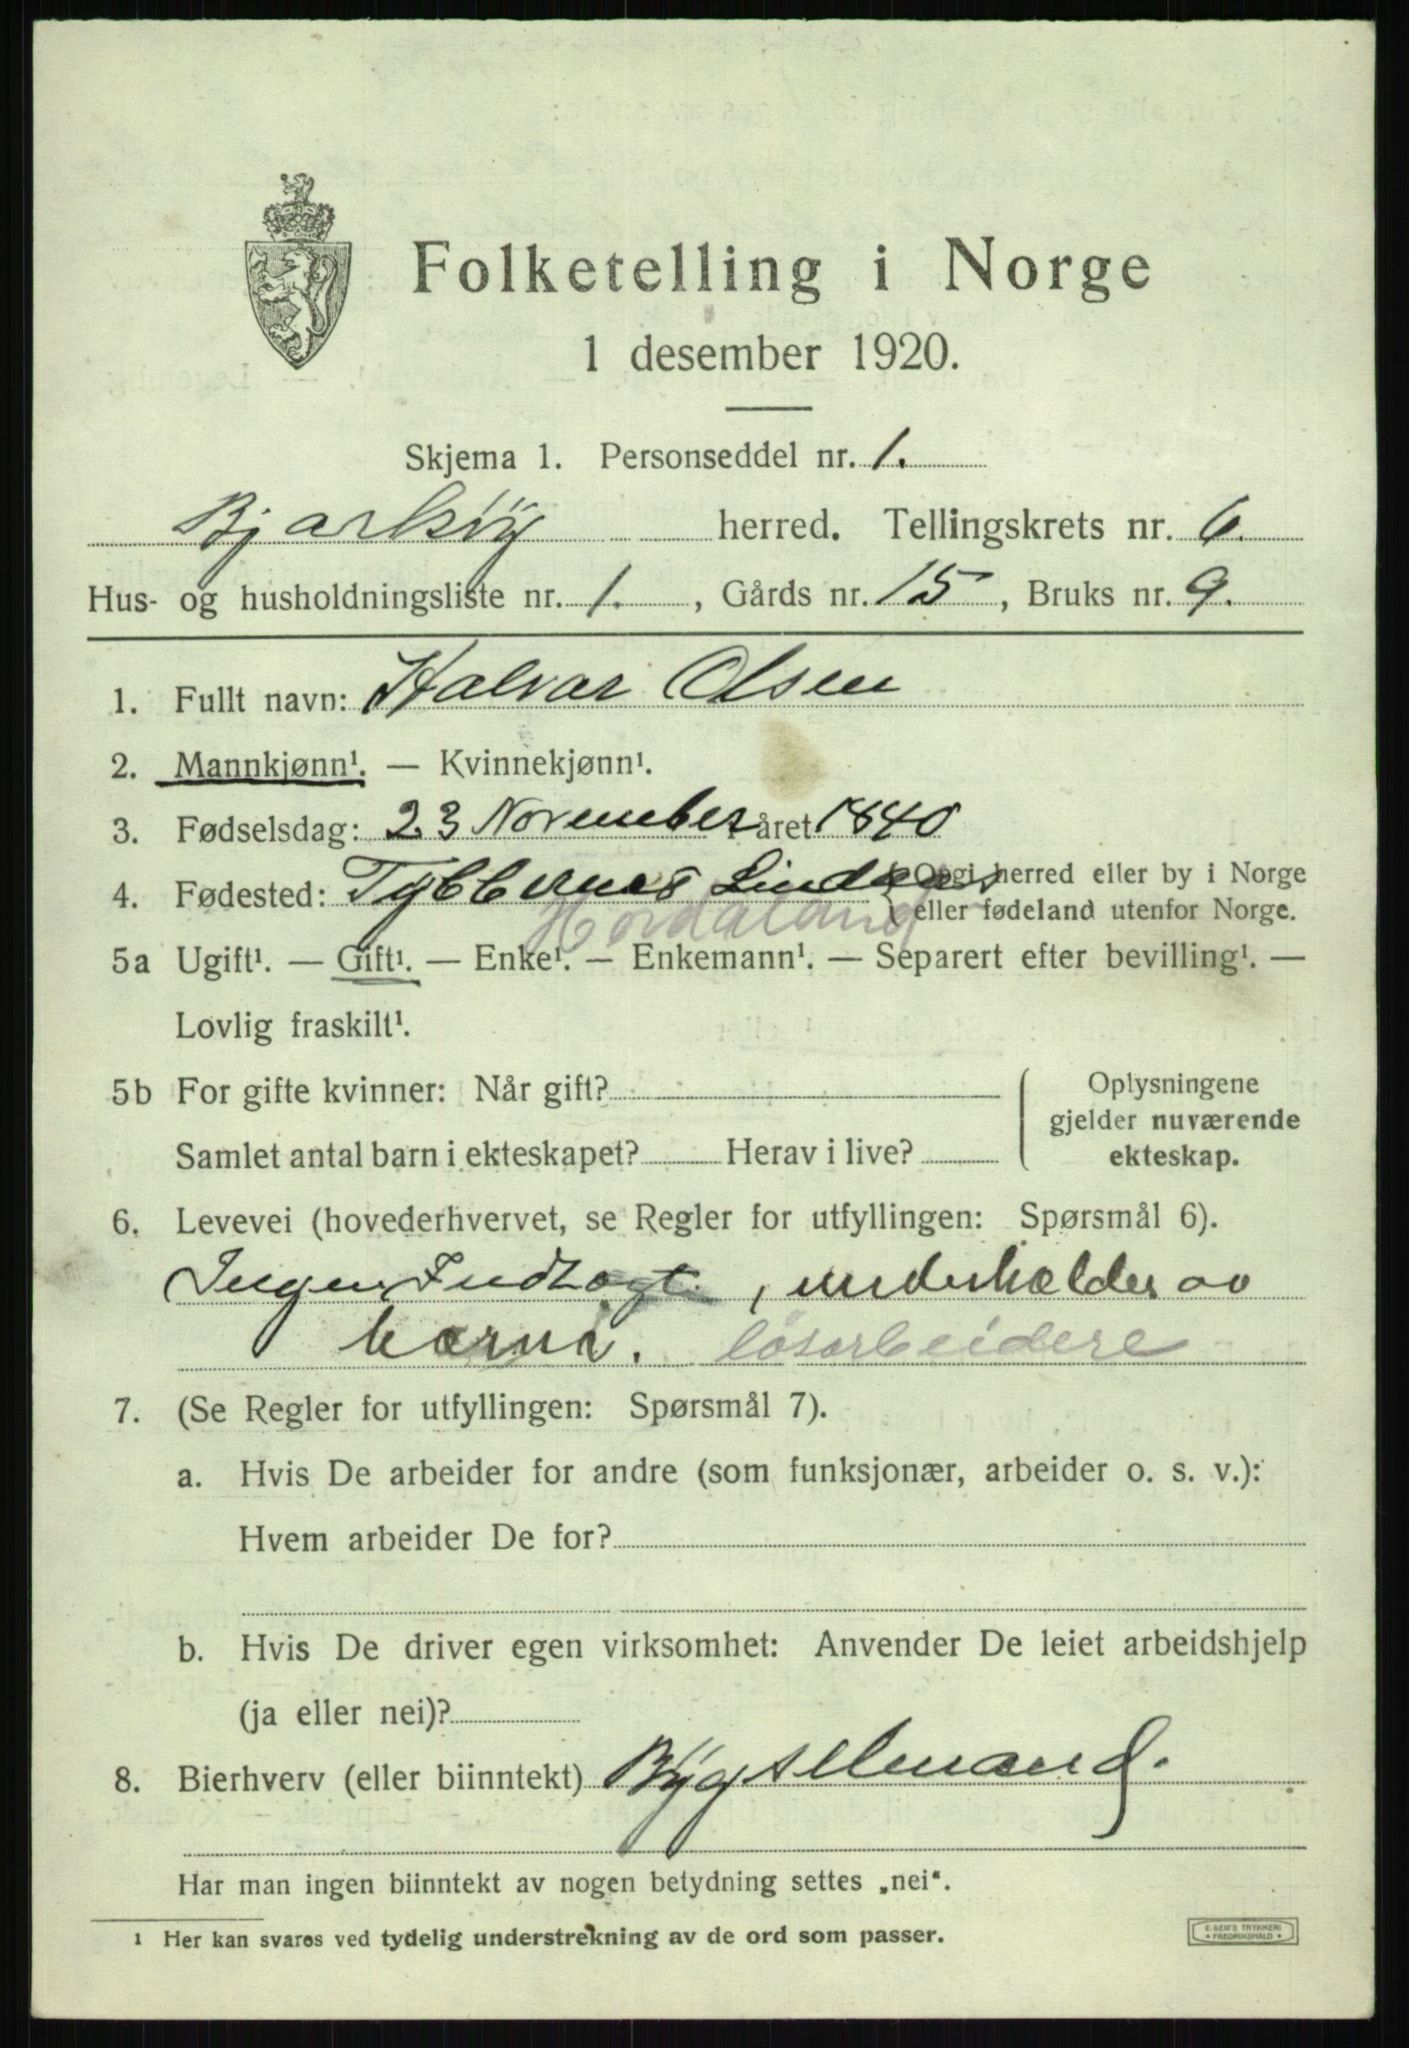 Folketelling i Norge
1 desember 1920.
Skjema 1. Personseddel nr. 1.
Bjarkøy herred. Tellingskrets nr. 6.
Hus- og husholdningsliste nr. 1. , Gårds nr. 15 , Bruks nr. 9.
1. Fullt navn: Halvar Olsen
2. Mannkjønn¹. — Kvinnekjønn¹.
3. Fødselsdag: 23 November i året 1840
4. Fødested: Lindaas { Opgi herred eller by i Norge
eller fødeland utenfor Norge.
Hordaland
5a Ugift¹. — Gift¹. — Enke¹. — Enkemann¹. — Separert efter bevilling¹. —
Lovlig fraskilt¹.
5b For gifte kvinner: Når gift?
Samlet antal barn i ekteskapet? Herav i live?
Oplysningene
gjelder nuværende
ekteskap.
6. Levevei (hovederhvervet, se Regler for utfyllingen: Spørsmål 6).
Ingen Indtægt , underholdes av
børni. løsarbeidere
7. (Se Regler for utfyllingen: Spørsmål 7).
a. Hvis De arbeider for andre (som funksjonær, arbeider o. s. v.):
Hvem arbeider De for?
b. Hvis De driver egen virksomhet: Anvender De leiet arbeidshjelp
(ja eller nei)?
8. Bierhverv (eller biinntekt) Bygselmand.
Har man ingen biinntekt av nogen betydning settes „nei“.
1 Her kan svares ved tydelig understrekning av de ord som passer.
E. SEM'S TRYKKERI
• FREDRIKSHALD •